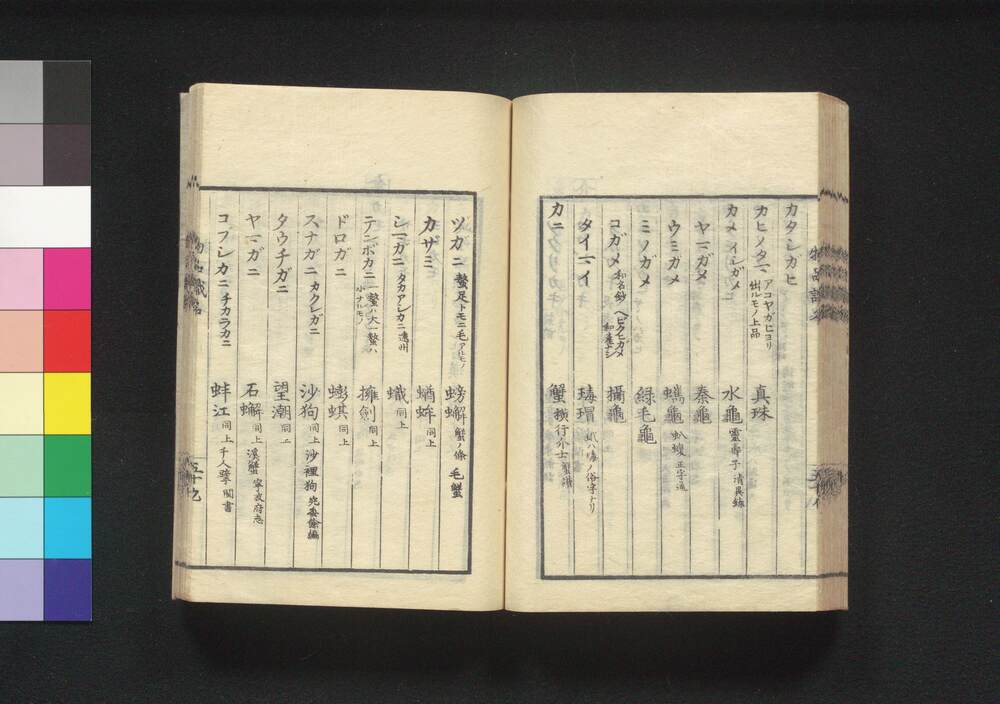 カタシガヒ
カヒノタマ アコヤガヒヨリ出ルモノ上品 真珠
カメ イシガメ 水龜 靈壽子 清異錄
ヤマガメ 秦龜
ウミガメ 蠵龜 𧊅蠵 正字通
ミノガメ 緑毛龜
コガメ 和名鈔 ヘビクヒガメ 和産ナシ 攝龜
タイマイ 瑇瑁
カニ 蟹 横行介士 蟹譜
ツカニ 螯足トモニ毛アルモノ 螃蠏 蟹ノ條 毛蟹
カザミ 蝤蛑 同上
シマカニ タカアシカニ 遠州 蟙 同上
テンボカニ 一螯ハ大一螯ハ小ナルモノ 擁劍 同上
ドロガニ 蟛蜞 同上
スナガニ カクレガニ 沙狗 同上 沙裡狗
タウチガニ 望潮 同上
ヤマガニ 石蠏 同上 溪蟹 寧波府志
コブシカニ チカラカニ 蚌江 同上 千人擘 閩書
五十九